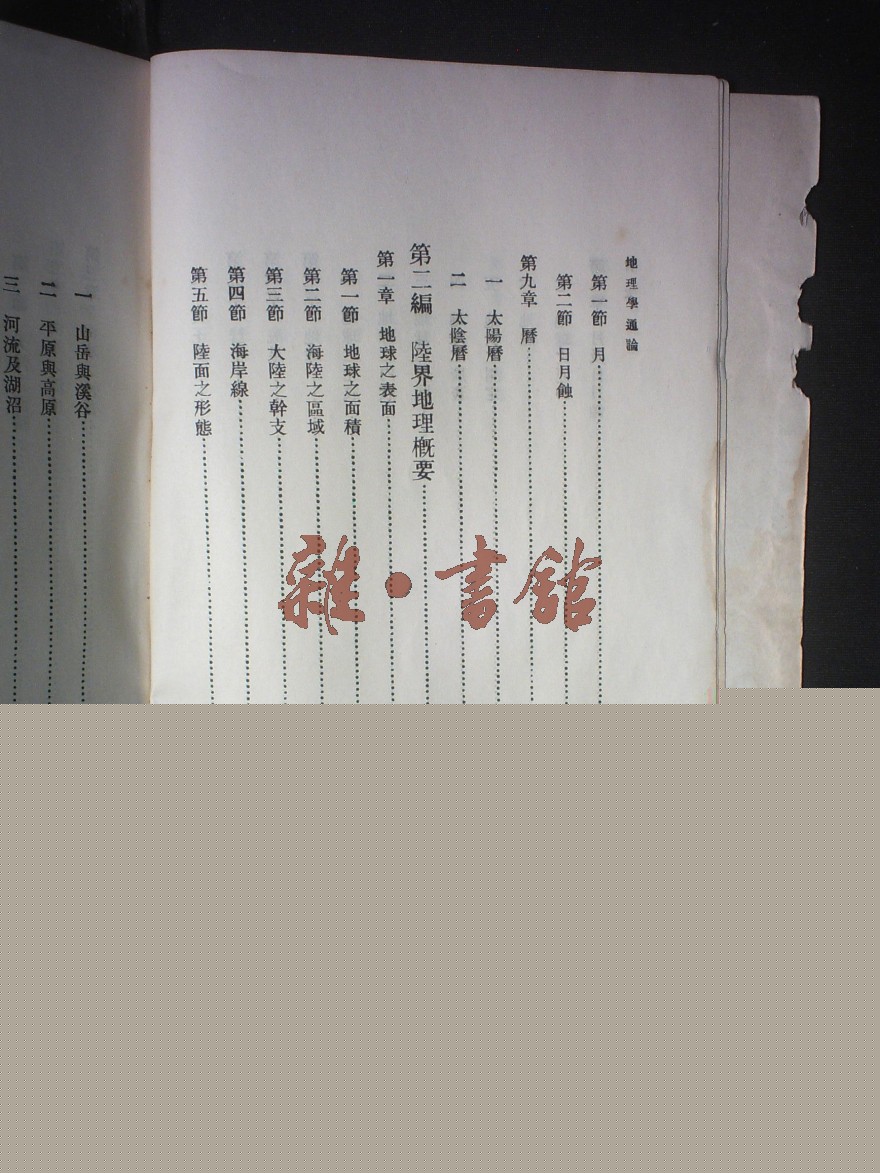 地理學通論
第一節 月
第二節 日月蝕
第九章 曆
一 太陽曆
二 太陰曆
第二編 陸界地理槪要
第一章 地球之表面
第一節 地球之面積
第二節 海陸之區域
第三節 大陸之幹支
第四節 海岸線
第五節 陸面之形態
一 山岳與溪谷
二 平原與高原
三 河流及湖沼
雜·書舘